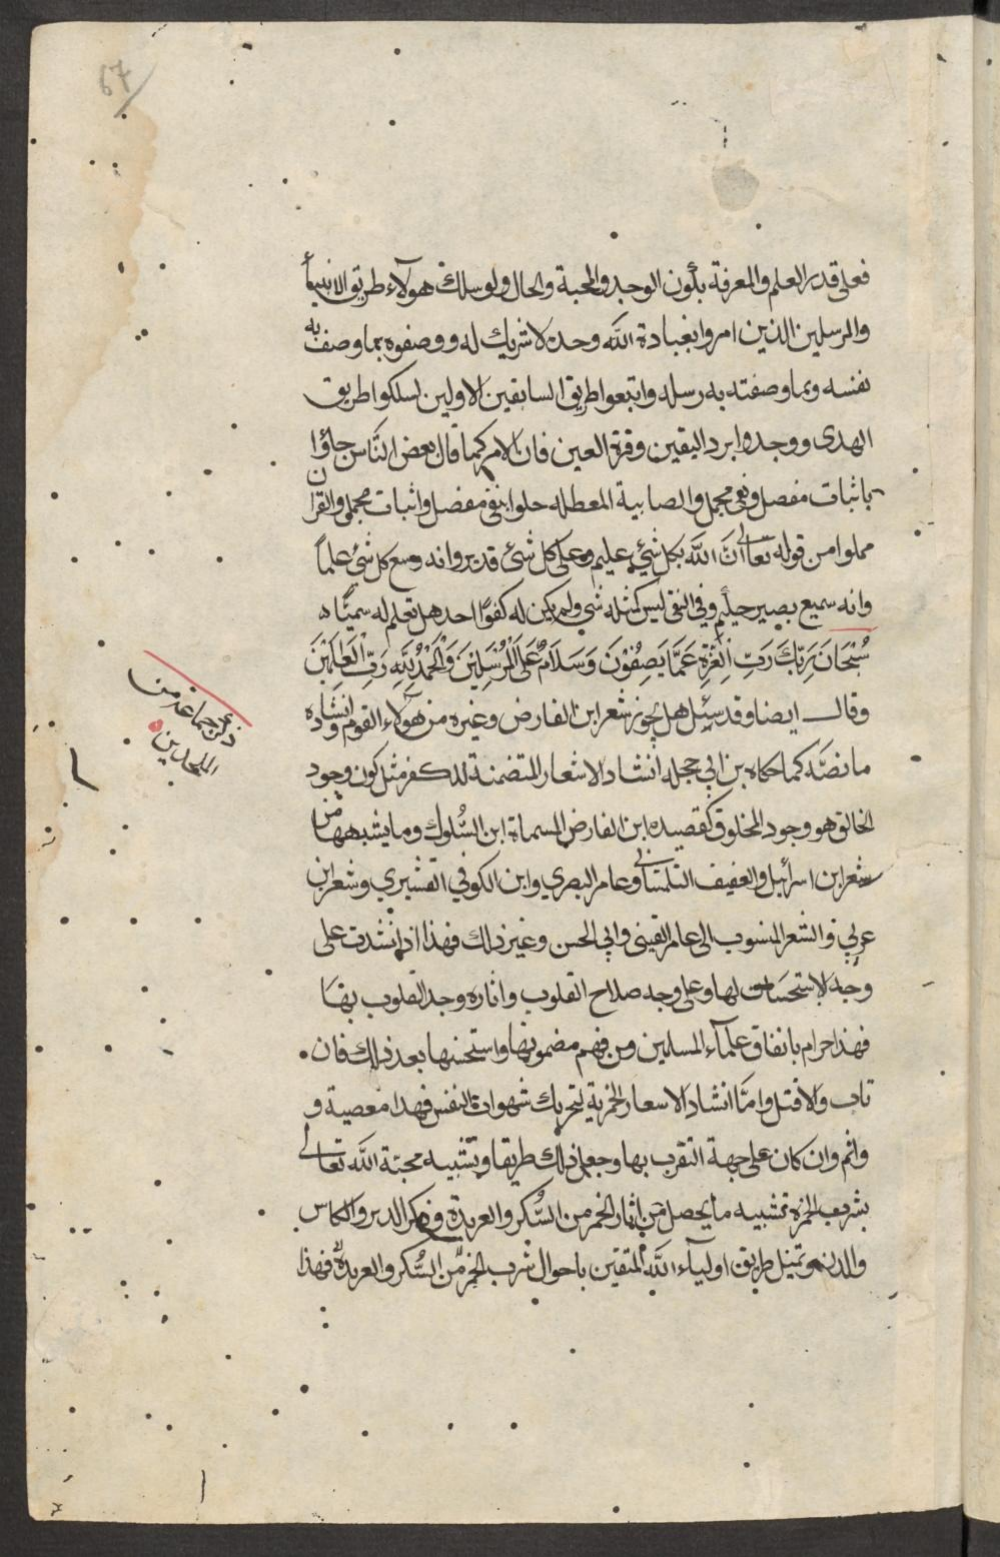 67
فعلى قدر العلم والمعرفة بكون الوجد والمحبة والحال ولو سلك هولاء طريق الانبيأ
والمرسلين الذين امروا بعبادة الله وحده لا شريك له ووصفوه بما وصف به
نفسه وبما وصفته به رسله واتبعوا طريق السابقين الاولين لسلكوا طريق
الهدى ووجدوا برد اليقين وقرة العين فان الامر كما قال بعض النَّاس جاؤا
باثبات مفصل ونفى مجمل والصابية المعطله جلوا بنفى مفصل واثبات مجمل والقرا ن
مملوا من قوله تعالى انَّ الله بكل شيْء عليم وعلى كل شئ قدير وانه وسع كل شئ علماً
وانه سميع بصير حليم وفى النفى ليس كمثله شي ولم يكن له كفوًا احد هل تعلم له سميًّا ه
سُبْحَانَ رَبِّكَ رَبِّ الْعِزَّةِ عَمَّا يَصِفُوْنَ وَسَلَامٌ عَلَى الْمُرْسَلِيْنَ وَالْحَمْدُ لِلّهِ رَبِّ الْعَالَمِيْنَ
وقال ايضا وقد سئل هل يجوز شعر ابن الفارض وغيره من هولاء القوم انشاده
ما نصَّه كما حكاه بن ابي حجله انشاد الاشعار المتضمنة للكفر مثل كون وجود
الخالق هو وجود المخلوق كقصيده ابن الفارض المسماة ابن السُّلوك وما يشبهها من
شعر ابن اسرائيل والعفيف التلمسانى وعامر البصري وابن الكوفي القشيري وشعر ابن
عربي والشعر المنسوب الى عامر القينى وابي الحسن وغير ذلك فهذا اذا انشدت على
وجه الاستحسان لها وعلى وجه صلاح القلوب واثاره وجد القلوب بها
فهذا حرام باتفاق علمآء المسلمين ومن فهم مضمونها واستحسنها بعد ذلك فان
تاب والا قتل وامَّا انشاد الاسعار الخمرية لتحريك شهوات النفس فهذا معصية و
واثم وان كان على جهة التقرب بها وجعل ذلك طريقا وتشبيه محبّة الله تعالى
بشرب الخمرة تشبيه ما يحصل من اثار الخمر من السُّكر والعربدة وذكر الدير والكاس
والدن وتمثيل طريق اوليآء الله المتقين باحوال شرب الخمر من السُّكر والعربدة فهذا
ذكر جماعة من
الملحدين ه